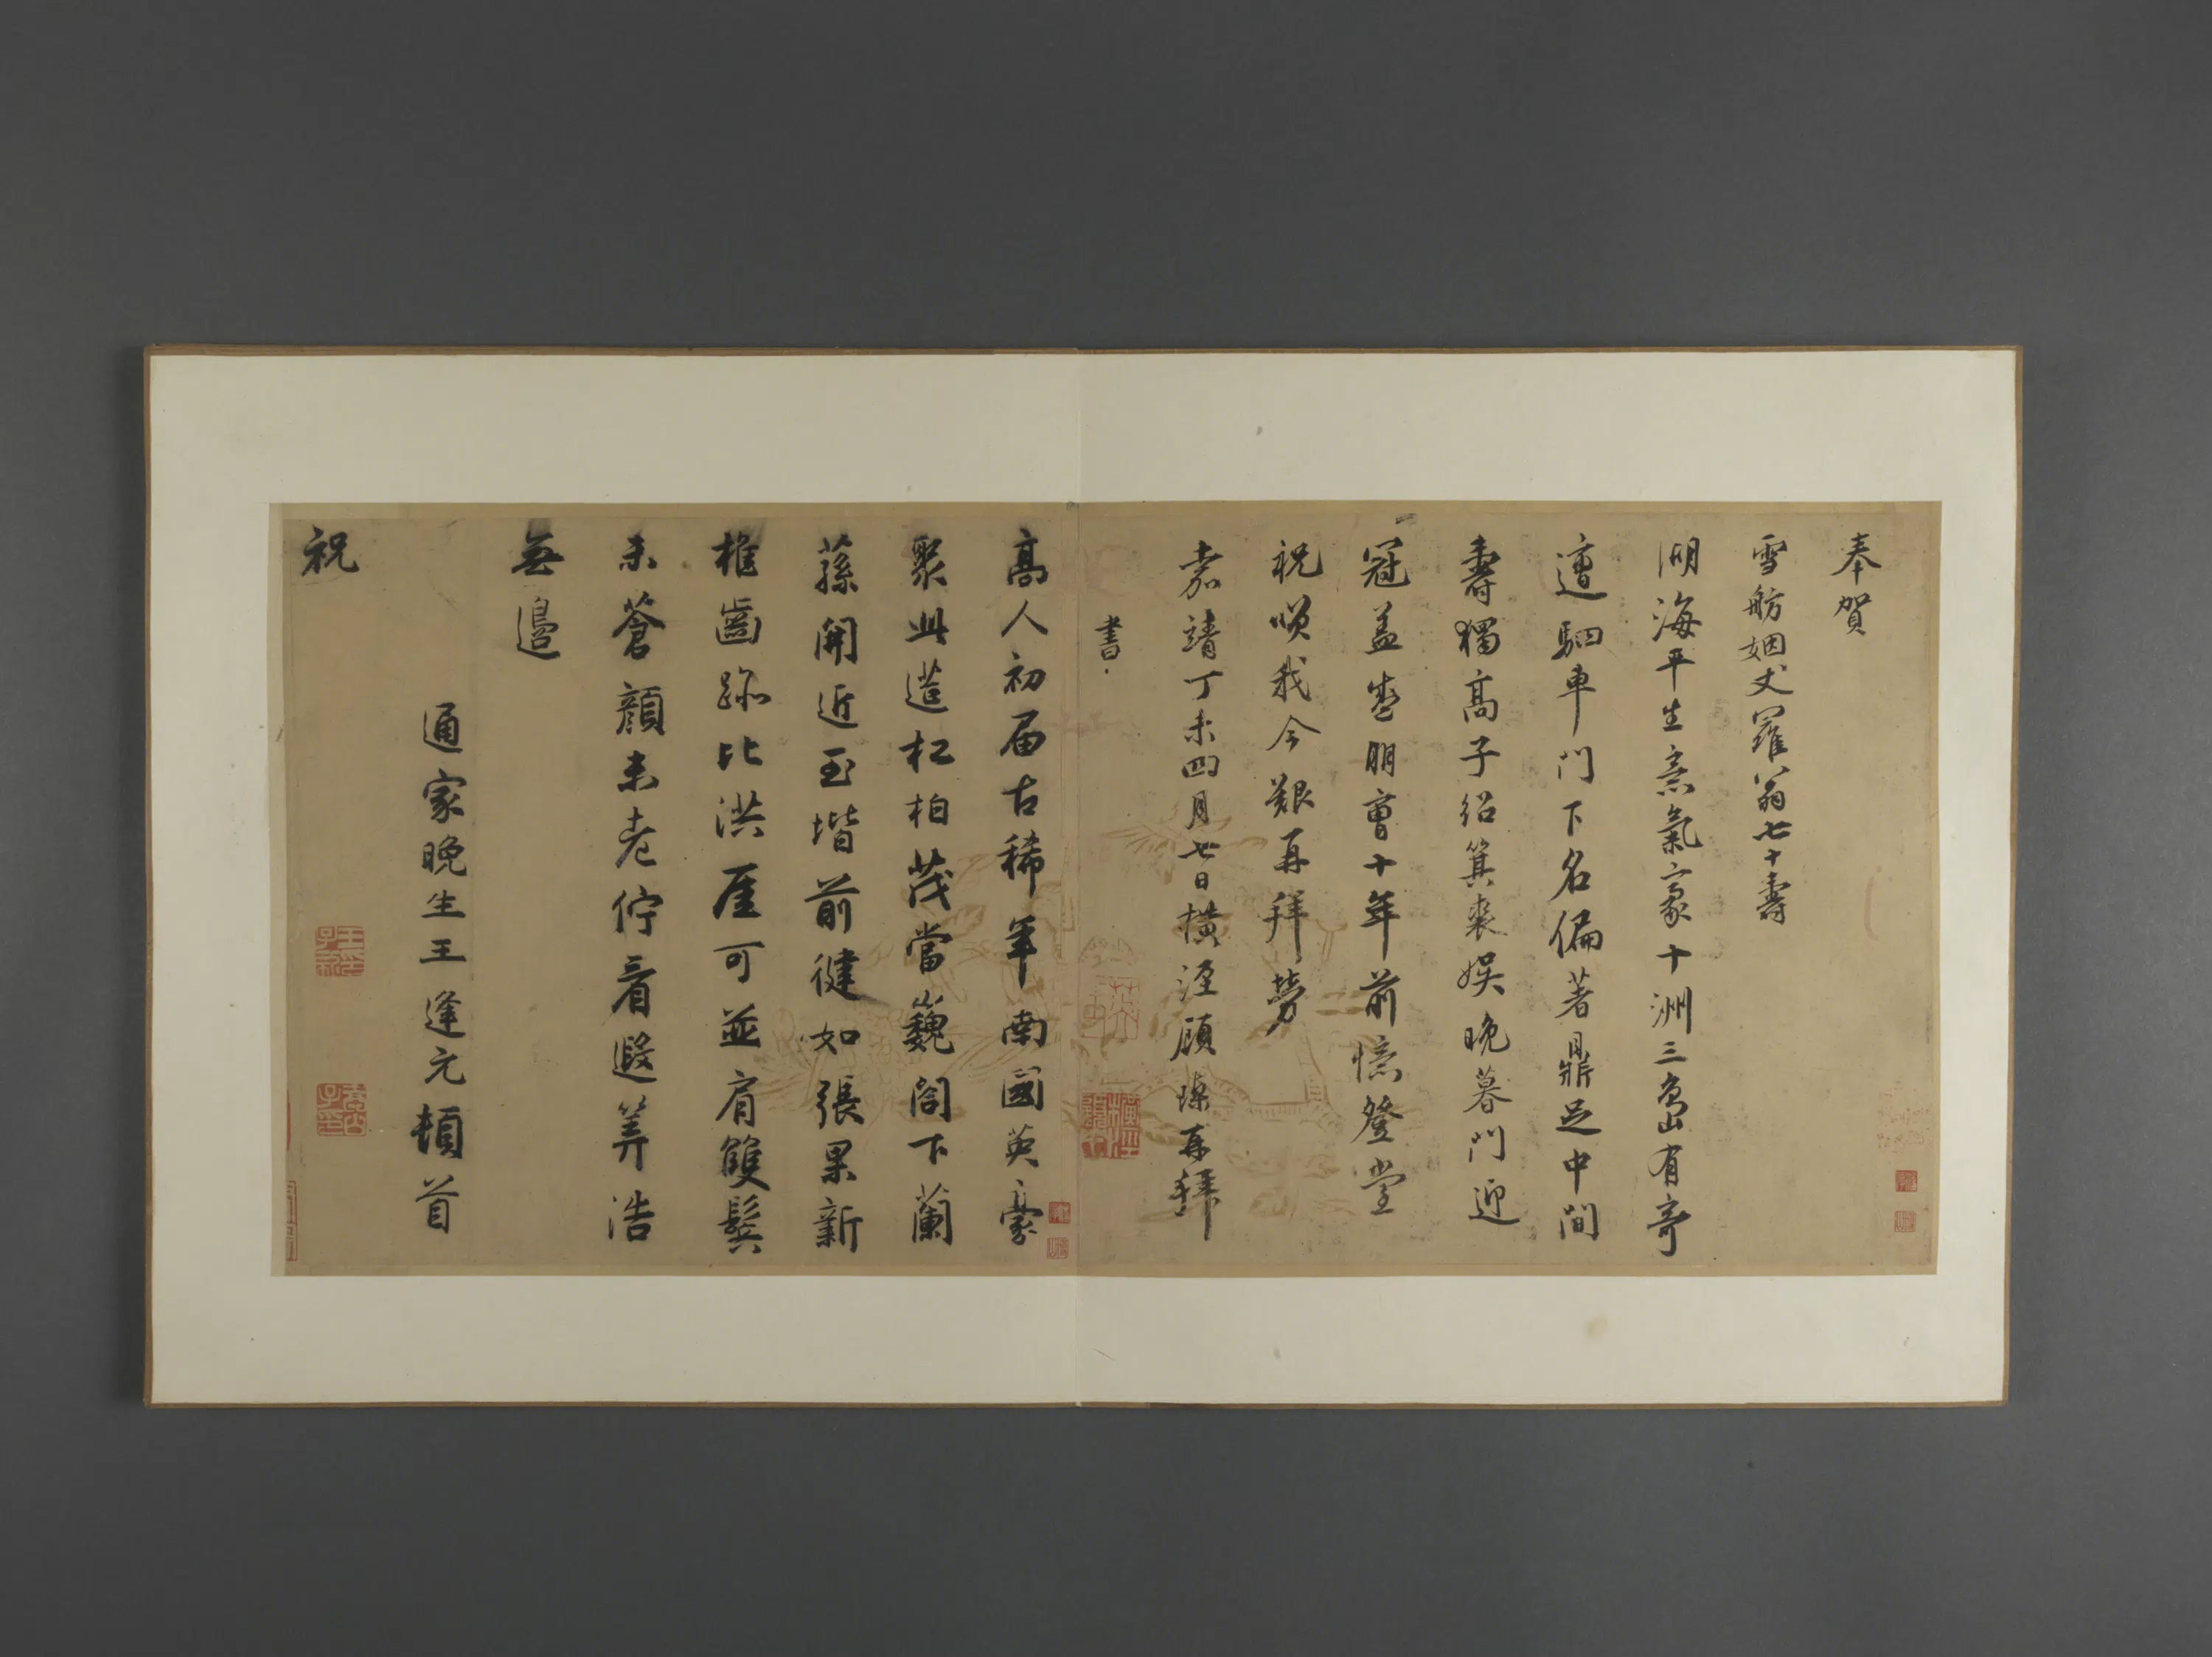 奉賀
雪舫姻丈羅翁七十壽
湖海平生意氣豪十洲三島有奇
遭駟車門下名偏著鼎足中間
壽獨高子紹箕裘娛晚暮門迎
冠蓋盛朋曹十年前憶登堂
祝嘆我今艱再拜勞
嘉靖丁未四月七日橫涇顧 再拜
書
高人初屆古稀年南國英豪
聚此造松柏茂當巍閣下蘭
蓀開近玉堦前健如張果新
椎齒跡比洪厓可並肩雙鬢
未蒼顏未老佇看遐筭浩
無邊
通家晚生王逢元頓首
祝